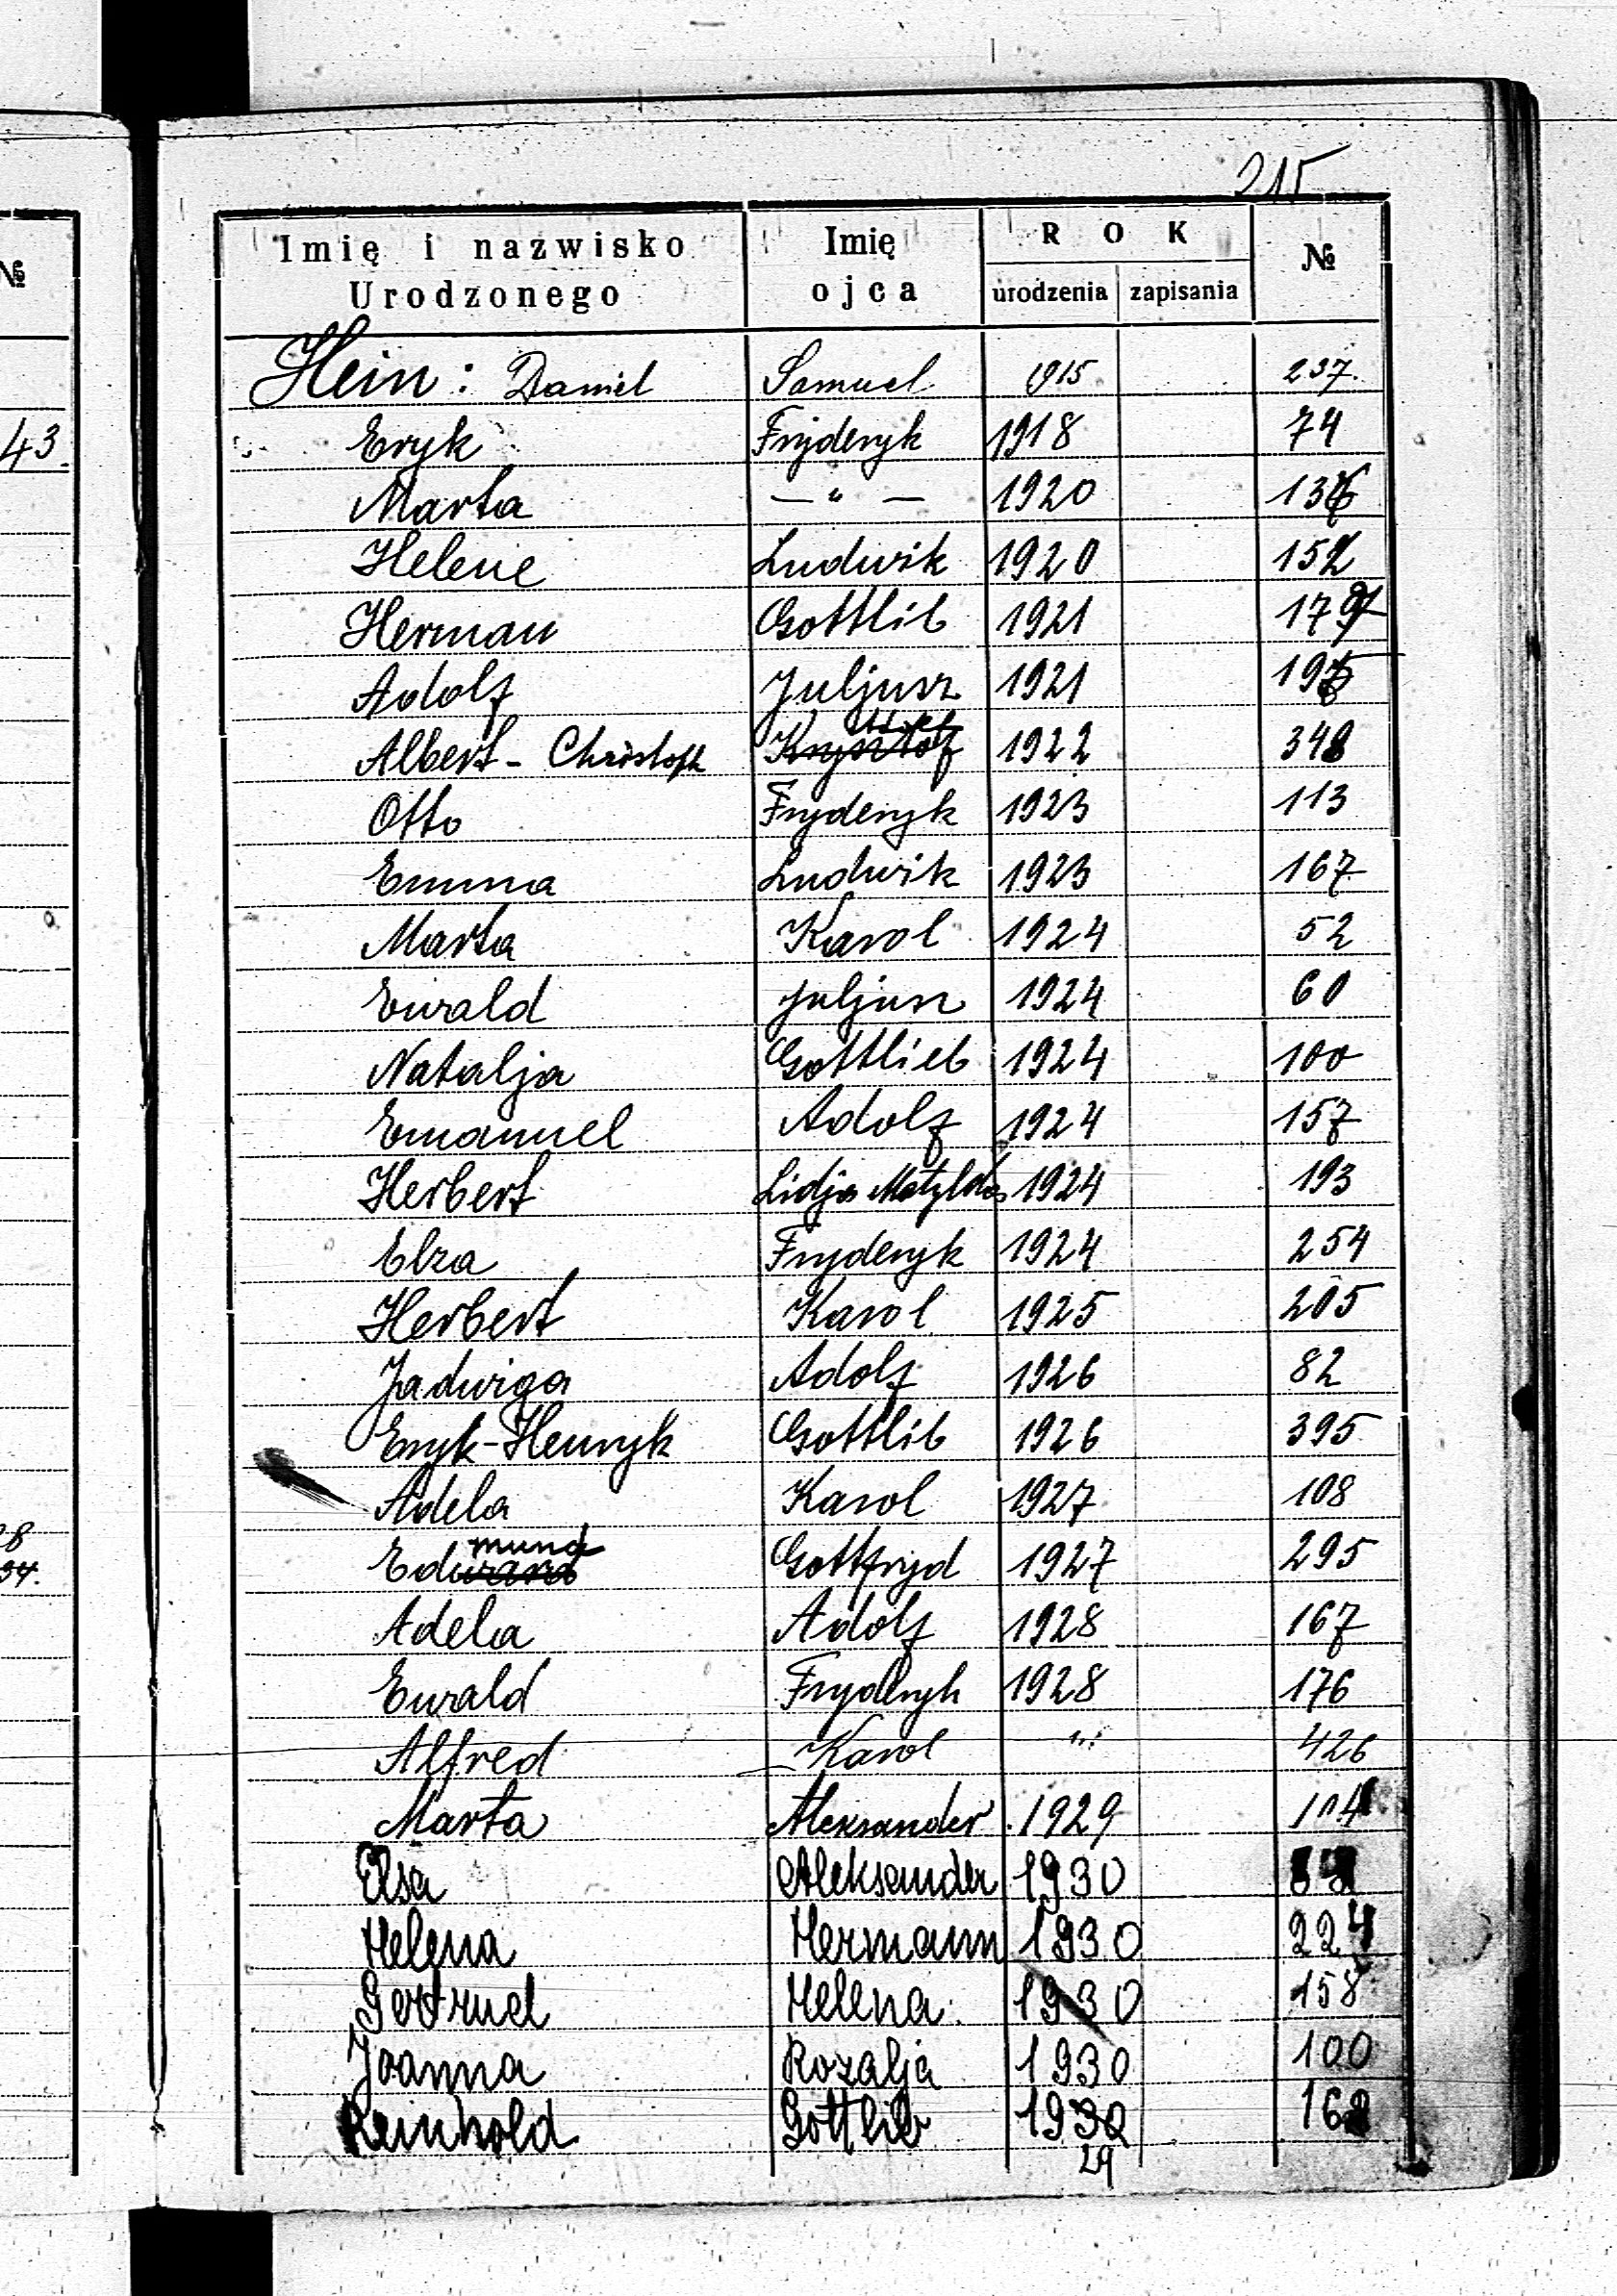 215
№
43
28
34.
Imię i nazwisko Urodzonego
Imię ojca
ROK
urodzenia zapisania
№
Hein: Daniel Samuel 1915 237.
Eryk Fryderyk 1918 74
Marta —"— 1920 136
Helene Ludwik 1920 152
Herman Gottlib 1921 179
Adolf Juljusz 1921 195
Albert-Christoph Krysztof 1922 348
Otto Fryderyk 1923 113
Emma Ludwik 1923 167
Marta Karol 1924 52
Ewald Juljusz 1924 60
Natalja Gottlieb 1924 100
Emanuel Adolf 1924 157
Herbert Lidja Matylda 1924 193
Elza Fryderyk 1924 254
Herbert Karol 1925 205
Jadwiga Adolf 1926 82
Eryk-Henryk Gottlib 1926 395
Adela Karol 1927 108
mund
Edward Gottfryd 1927 295
Adela Adolf 1928 167
Ewald Fryderyk 1928 176
Alfred Karol " 426
Marta Aleksander 1929 104
Elsa Aleksander 1930
Helena Hermann 1930 224
Gertrud Helena 1930 158
Joanna Rozalja 1930 100
Reinhold Gottlieb 1930 162
29